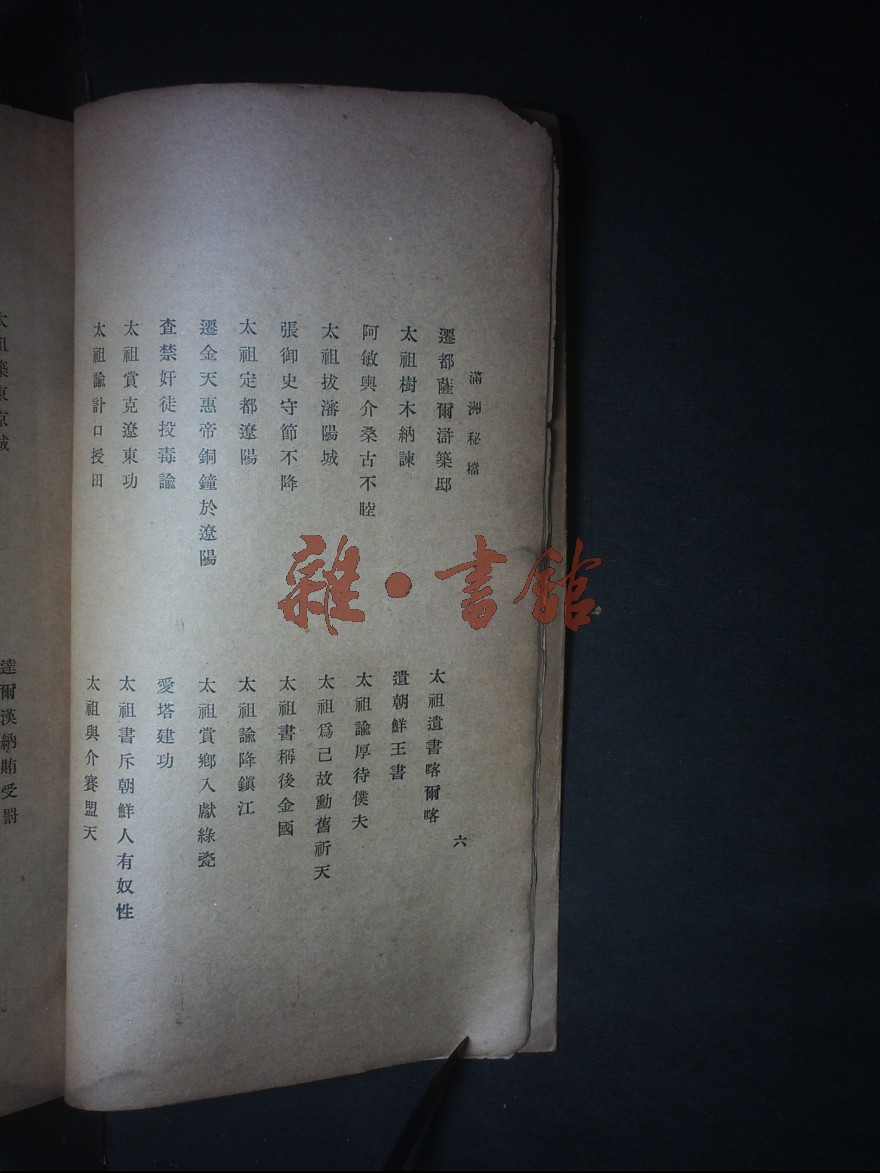 滿洲秘檔
六
遷都薩爾滸築邸
太祖遺書喀爾喀
太祖樹木納諫
遺朝鮮王書
阿敏與介桑古不睦
太祖諭厚待僕夫
太祖拔瀋陽城
太祖爲己故勳舊祈天
張御史守節不降
太祖書稱後金國
太祖定都遼陽
太祖諭降鎮江
遷金天惠帝銅鐘於遼陽
太祖賞鄉人獻綠瓷
查禁奸徒投毒諭
愛塔建功
太祖賞克遼東功
太祖書斥朝鮮人有奴性
太祖諭計口授田
太祖與介賽盟天
太祖築東京城
達爾漢納賄受罰
雜·書館